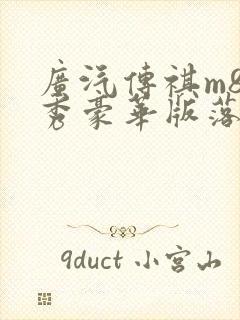 廣汽傳祺m8
秀豪華版落
9duct 小宮山